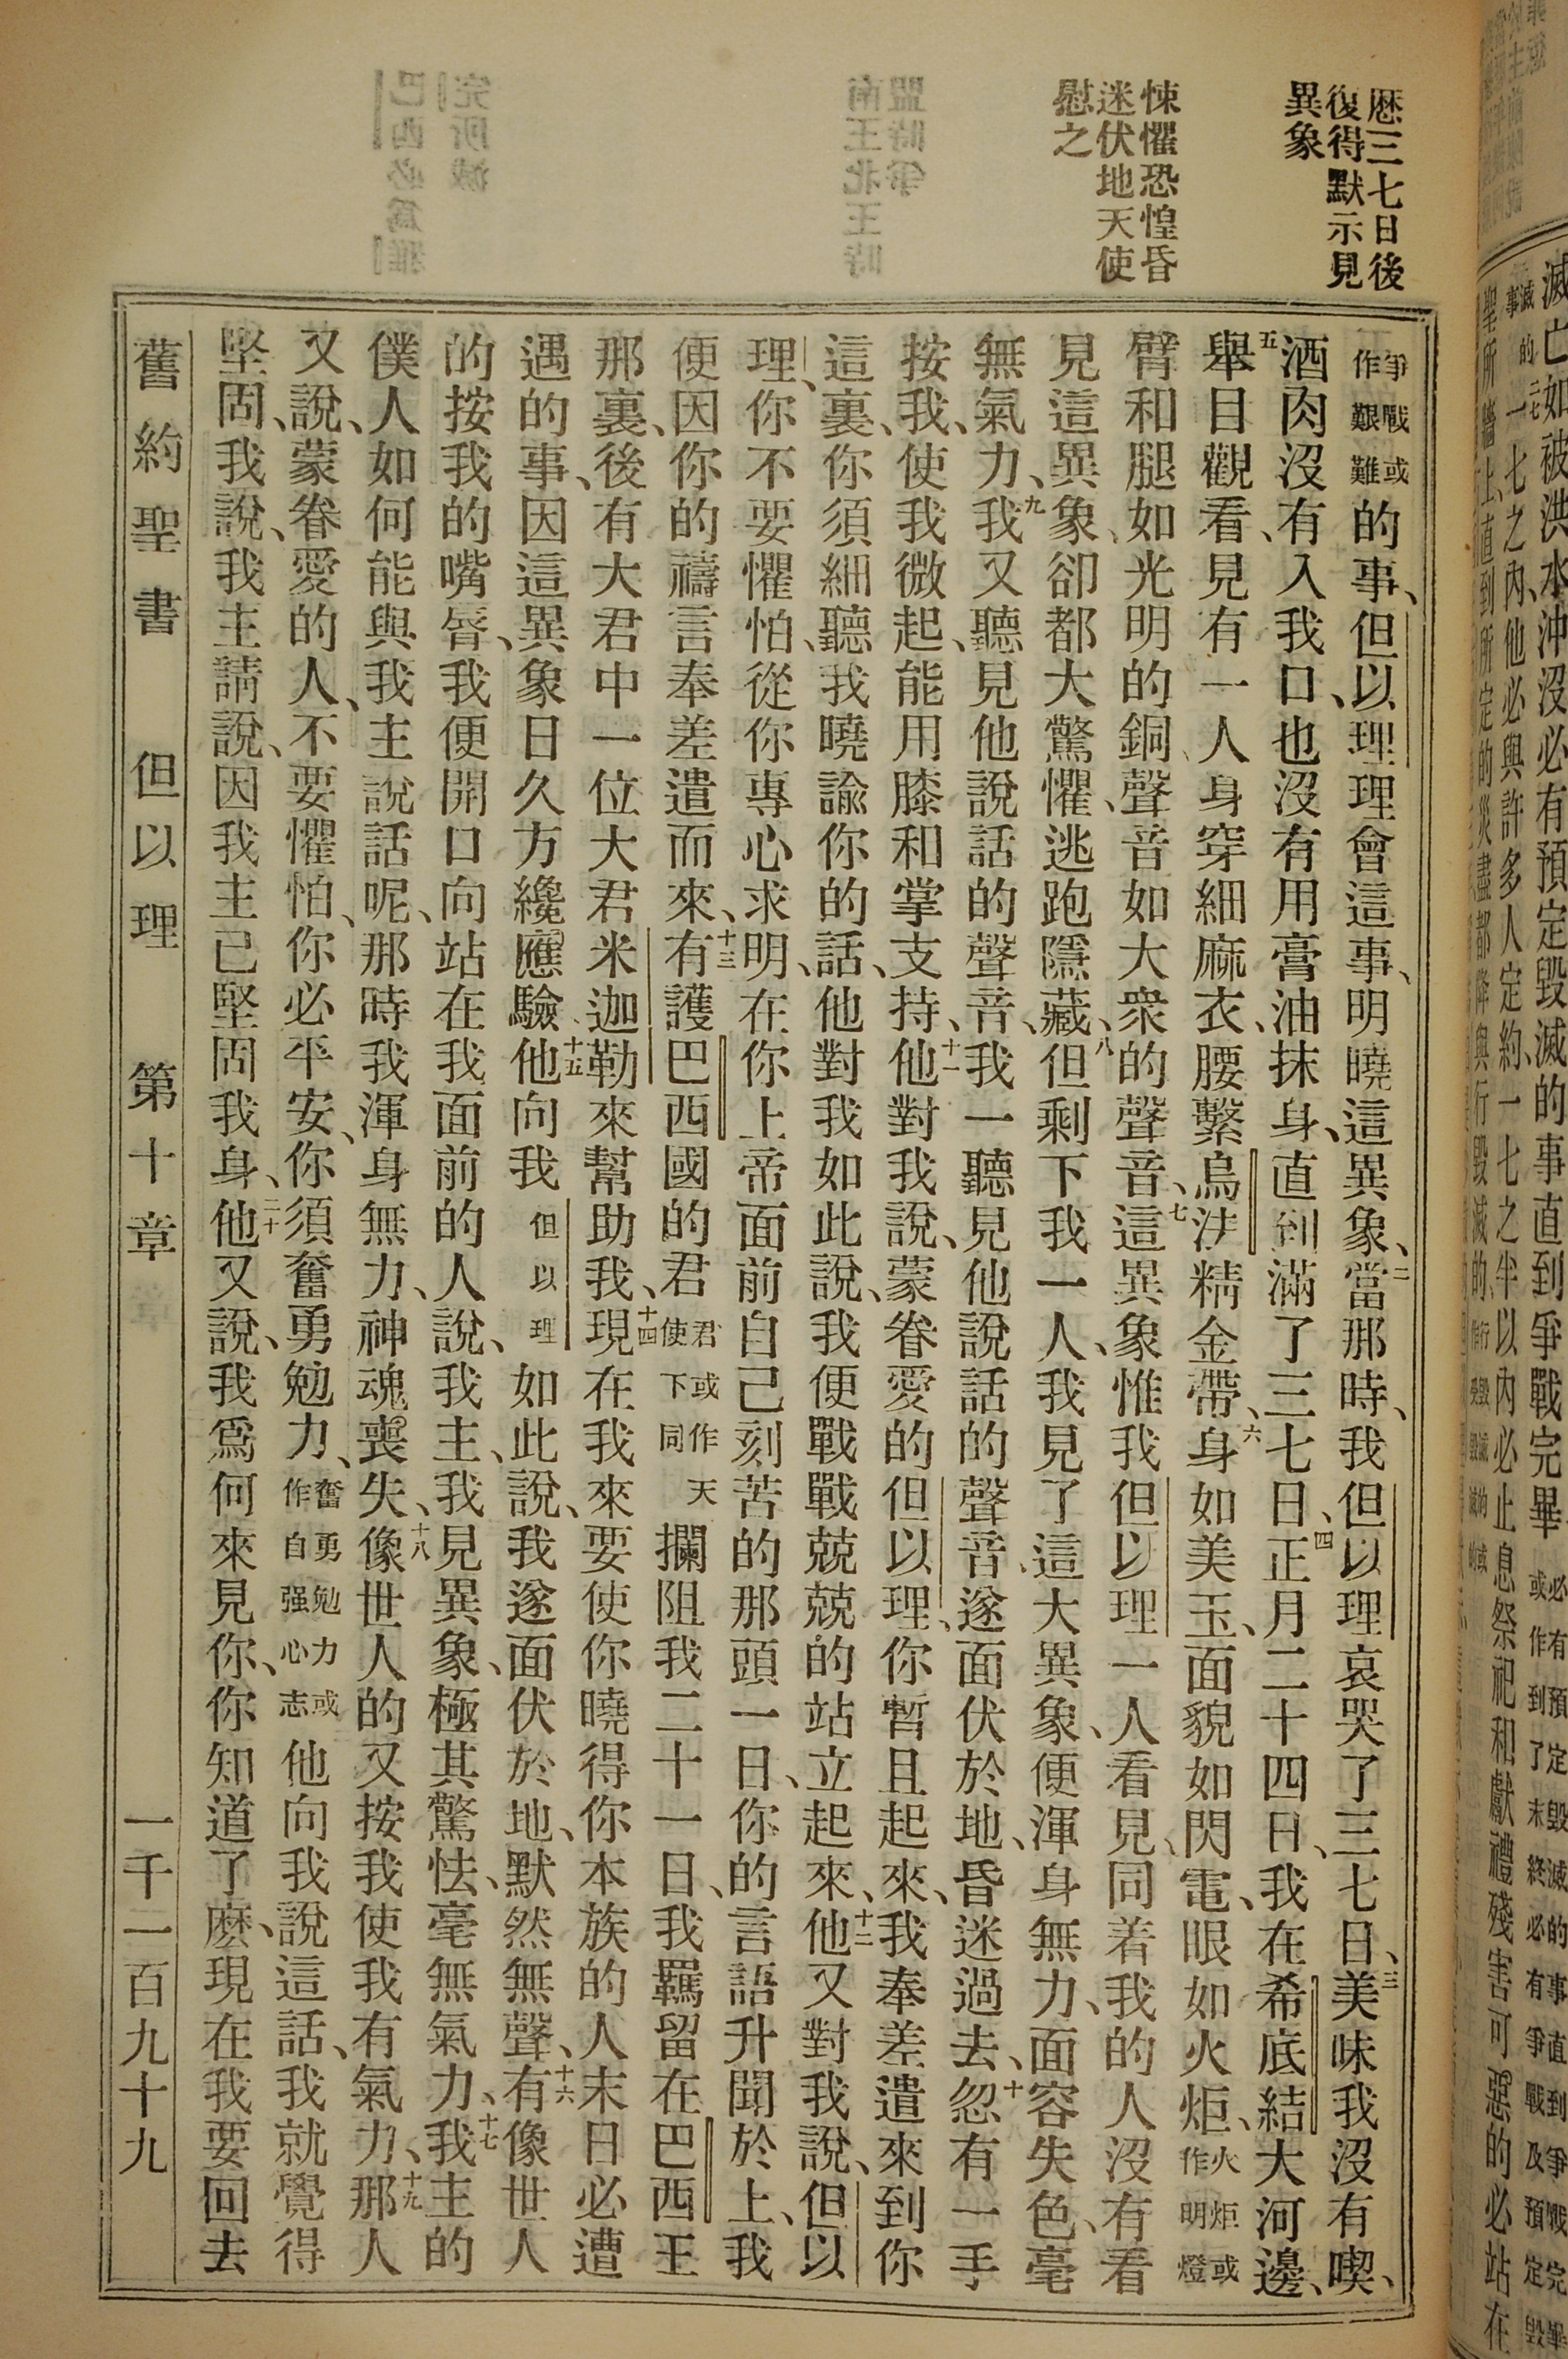 歷三七日後
復得默示見
異象
悚懼恐惶昏
迷伏地天使
慰之
爭戰或
作艱難
的事、但以理理會這事、明曉這異象、二當那時、我但以理哀哭了三七日、三美味我沒有喫、
酒肉沒有入我口、也沒有用膏油抹身、直到滿了三七日、四正月二十四日、我在希底結大河邊、
五舉目觀看、見有一人身穿細麻衣、腰繫烏法精金帶、六身如美玉、面貌如閃電、眼如火炬、火炬或作明燈
臂和腿如光明的銅、聲音如大衆的聲音、七這異象惟我但以理一人看見、同着我的人沒有看
見這異象、卻都大驚懼、逃跑隱藏、八但剩下我一人、我見了這大異象、便渾身無力、面容失色、毫
無氣力、九我又聽見他說話的聲音、我一聽見他說話的聲音、遂面伏於地、昏迷過去、十忽有一手
按我、使我微起、能用膝和掌支持、十一他對我說、蒙眷愛的但以理、你暫且起來、我奉差遣來到你
這裏、你須細聽我曉諭你的話、他對我如此說、我便戰戰兢兢的站立起來、十二他又對我說、但以
理、你不要懼怕、從你專心求明、在你上帝面前自己刻苦的那頭一日、你的言語升聞於上、我
便因你的禱言奉差遣而來、十三有護巴西國的君君或作天使下同攔阻我二十一日、我羈留在巴西王
那裏、後有大君中一位大君米迦勒來幫助我、十四現在我來要使你曉得你本族的人末日必遭
遇的事、因這異象日久方纔應驗、十五他向我但以理如此說、我遂面伏於地、默然無聲、十六有像世人
的按我的嘴脣、我便開口向站在我面前的人說、我主、我見異象、極其驚怯、毫無氣力、十七我主的
僕人如何能與我主說話呢、那時我渾身無力、神魂喪失、十八像世人的又按我使我有氣力、十九那人
又說、蒙眷愛的人、不要懼怕、你必平安、你須奮勇勉力、奮勇勉力或作自强心志他向我說這話、我就覺得
堅固、我說、我主請說、因我主已堅固我身、二十他又說、我爲何來見你、你知道了麽、現在我要回去
舊約聖書 但以理 第十章 一千一百九十九